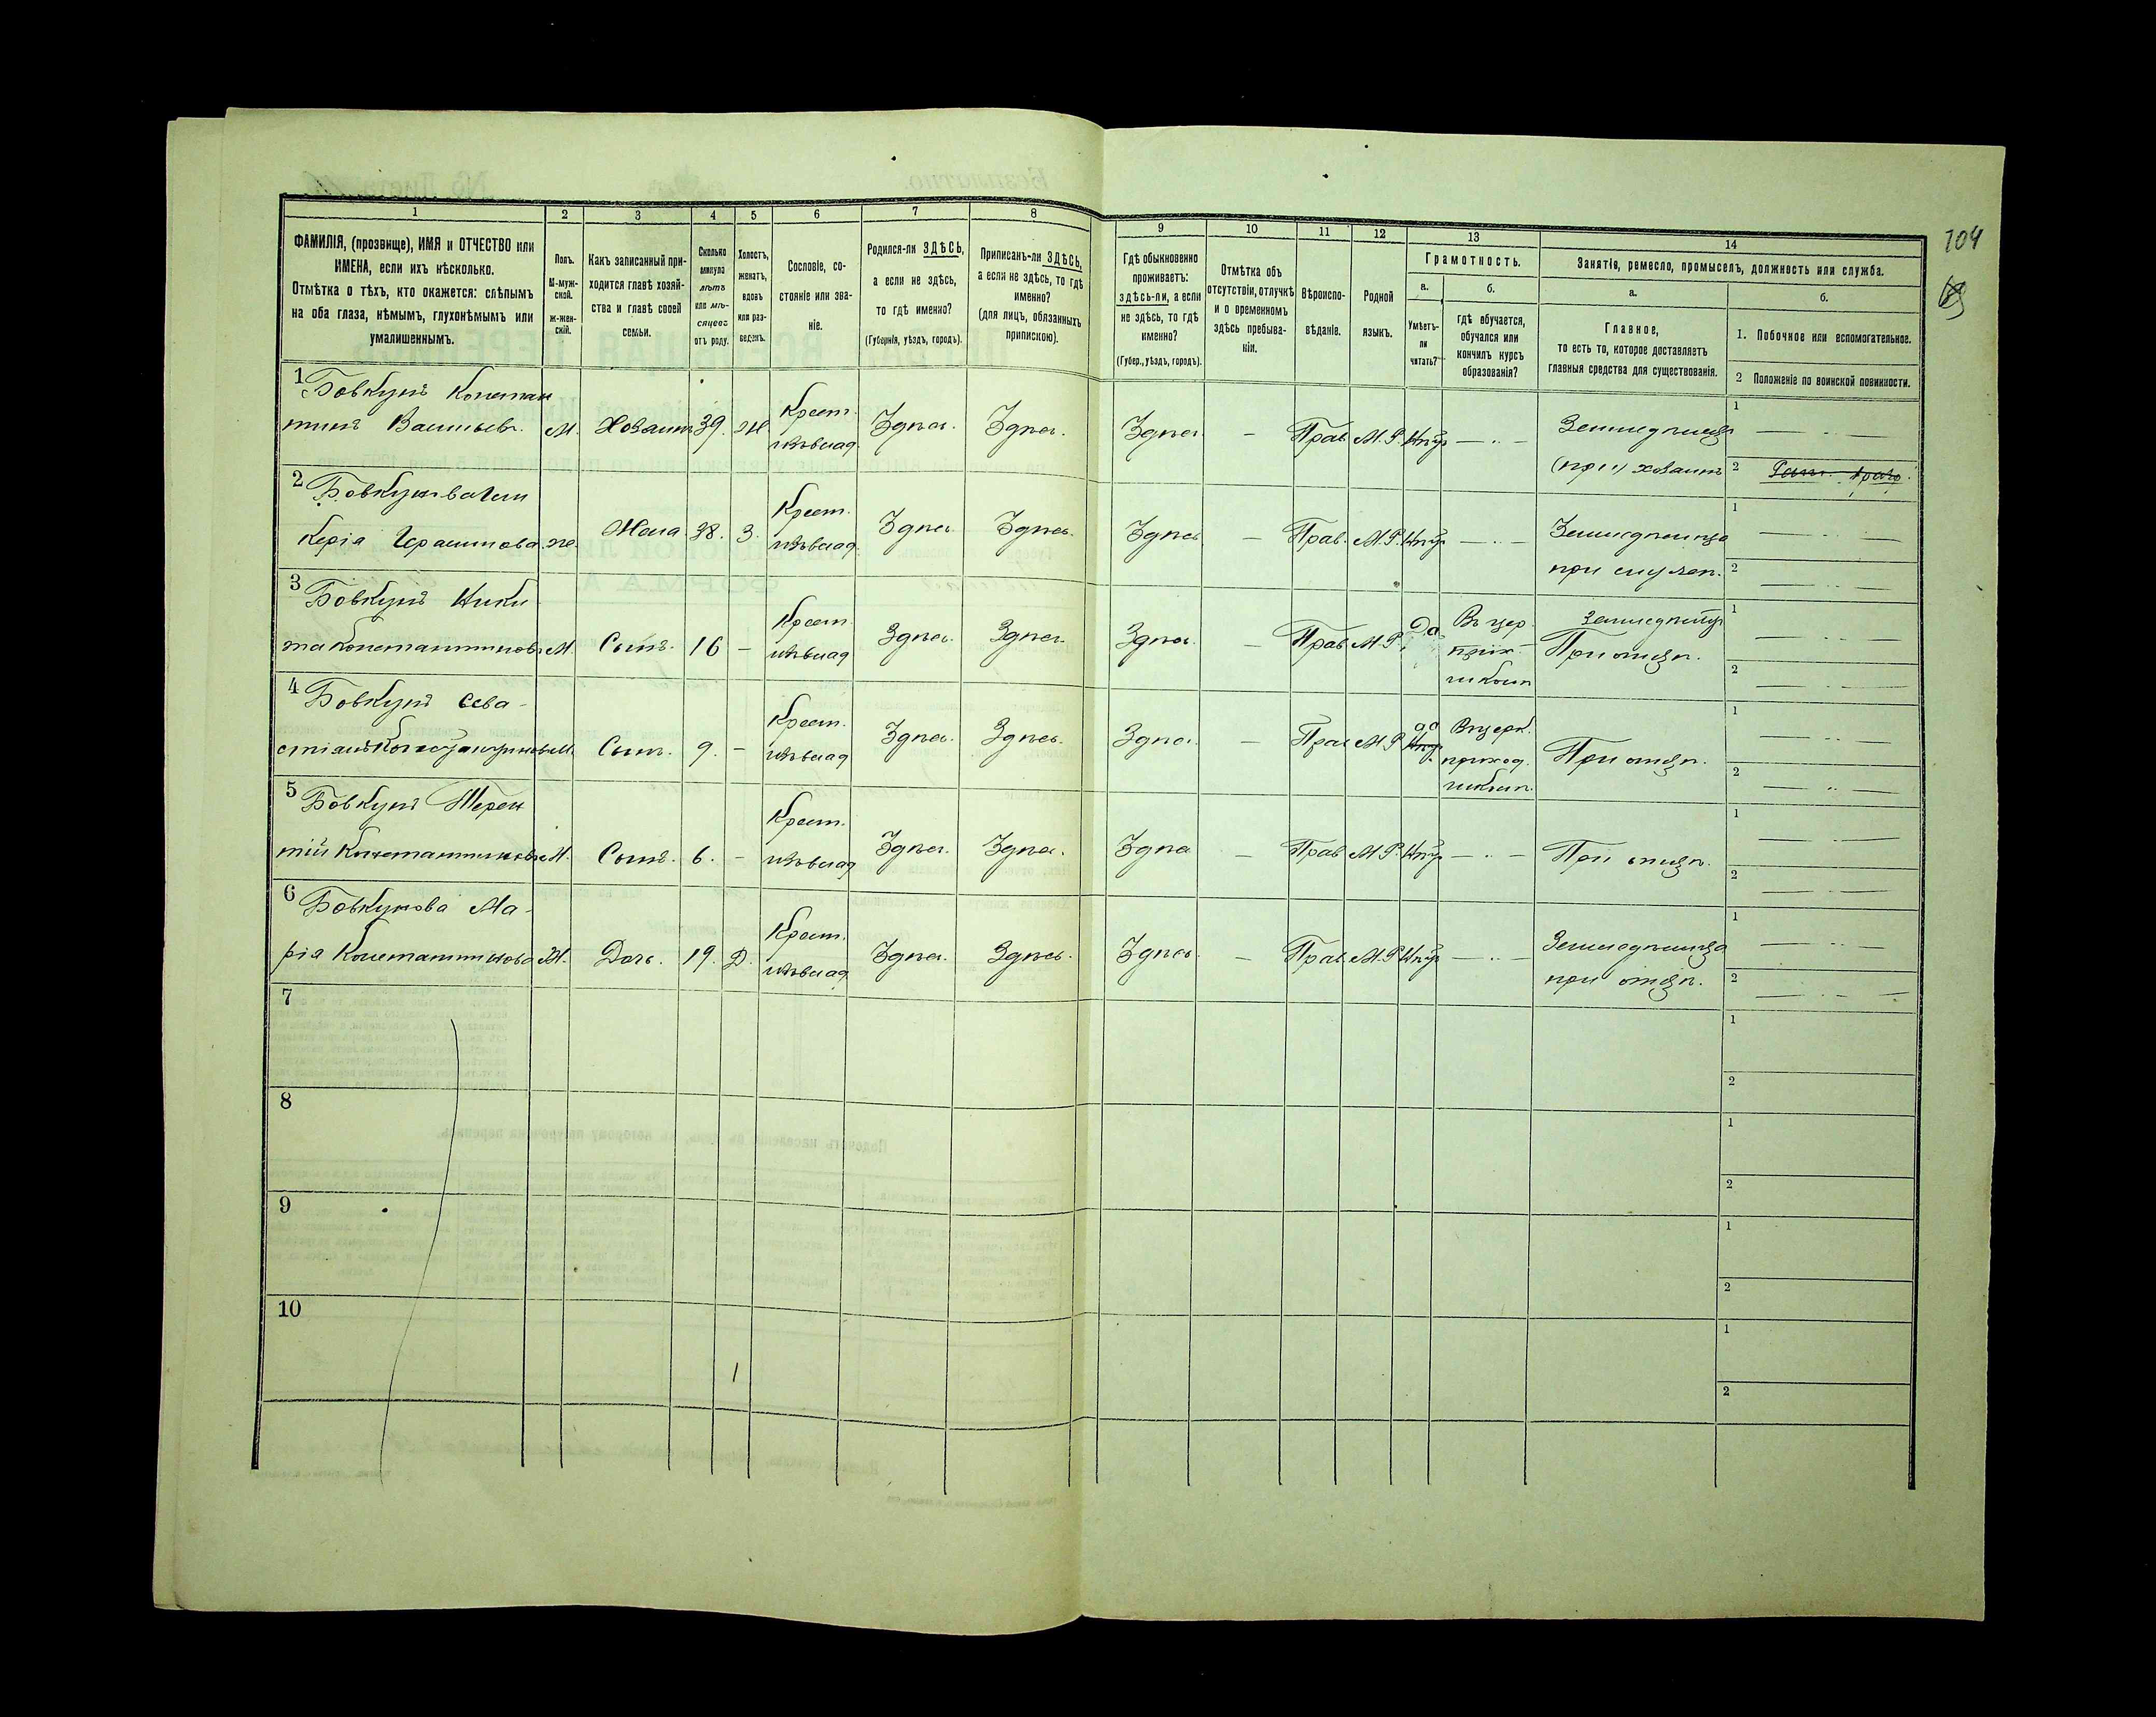 104
1 2 3 4 5 6 7 8 9 10 11 12 13 14
ФАМИЛІЯ, (прозвище), ИМЯ и ОТЧЕСТВО или
ИМЕНА, если ихъ нѣсколько.
Отмѣтка о тѣхъ, кто окажется: слѣпымъ
на оба глаза, нѣмымъ, глухонѣмымъ или
умалишеннымъ.
Полъ.
М-муж-
ской.
ж-жен-
скій.
Какъ записанный при-
ходится главѣ хозяй-
ства и главѣ своей
семьи.
Сколько
минуло
лѣтъ
или мѣ-
сяцевъ
отъ роду.
Холостъ,
женатъ,
вдовъ
или раз-
веденъ.
Сословіе, со-
стояніе или зва-
ніе.
Родился-ли ЗДѢСЬ,
а если не здѣсь,
то гдѣ именно?
(Губернія, уѣздъ, городъ).
Приписанъ-ли ЗДѢСЬ,
а если не здѣсь, то гдѣ
именно?
(для лицъ, обязанныхъ
припискою).
Гдѣ обыкновенно
проживаетъ:
здѣсь-ли, а если
не здѣсь, то гдѣ
именно?
(Губер., уѣздъ, городъ).
Отмѣтка объ
отсутствіи, отлучкѣ
и о временномъ
здѣсь пребыва-
ніи.
Вѣроиспо-
вѣданіе.
Родной
языкъ.
Грамотность.
а.
Умѣетъ-
ли
читать?
б.
гдѣ обучается,
обучался или
кончилъ курсъ
образованія?
Занятіе, ремесло, промыселъ, должность или служба.
а.
Главное,
то есть то, которое доставляетъ
главныя средства для существованія.
б.
1. Побочное или вспомогательное.
2 Положеніе по воинской повинности.
1 Бовкунъ Констан
тинъ Васильевъ. М. Хозяинъ 39. Ж Крест. Здѣсь. Здѣсь. Здѣсь - Прав. М.Р. Нѣтъ
Земледѣлецъ
(при) хозяинъ
2 Бовкунова
Керія Герасимова. ж. Жена 38. З. Крест. Здѣсь. Здѣсь. Здѣсь - Прав. М.Р. Нѣтъ
Земледѣлица
при
3 Бовкунъ Ники
та Константиновъ М. Сынъ. 16 - Крест. Здѣсь. Здѣсь. Здѣсь. - Прав М.Р. Да
Въ цер.
прих.
школѣ
Земледѣлецъ
При отцѣ.
4 Бовкунъ Сева-
стіанъ Константиновъ М. Сынъ. 9. - Крест. Здѣсь. Здѣсь. Здѣсь. - Прав М.Р. да
Въ церк.
приход.
школѣ.
При отцѣ.
5 Бовкунъ Терен
тій Константиновъ М. Сынъ. 6. - Крест. Здѣсь. Здѣсь. Здѣсь - Прав М.Р. Нѣтъ
При отцѣ.
6 Бовкунова Ма-
рія Константинова Ж. Дочь. 19. Д. Крест. Здѣсь. Здѣсь. Здѣсь. - Прав. М.Р. Нѣтъ
Земледѣлица
при отцѣ.
7
8
9
10